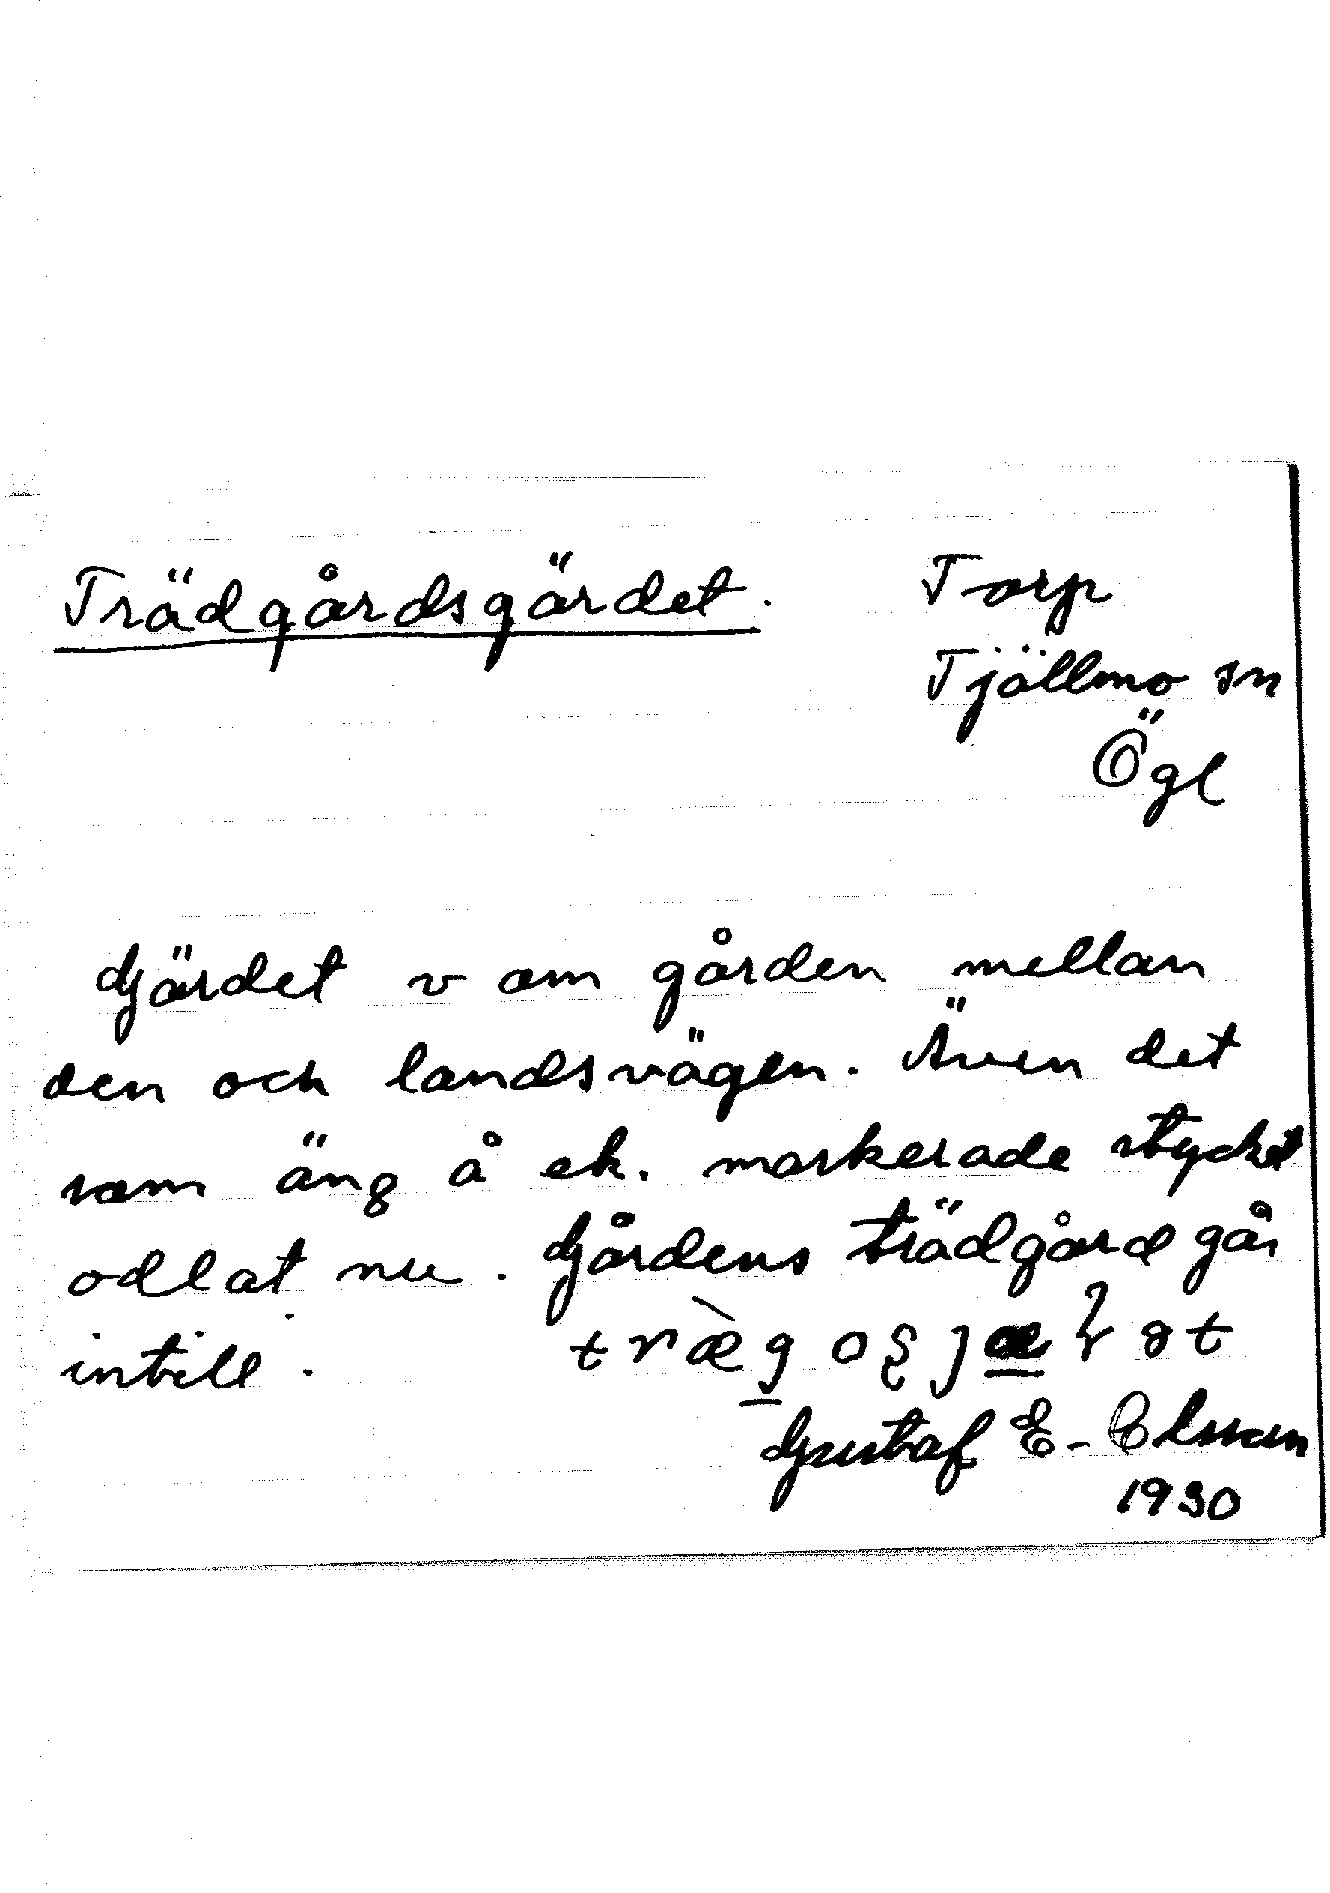 Trädgårdsgärdet. Torp
Tjällmo sn
Ögl
Gärdet v om gården mellan
den och landsvägen. Även det
som äng å ek. markerade stycket
odlat nu. Gårdens trädgård går
intill.
Gustaf E-Elsson
1930